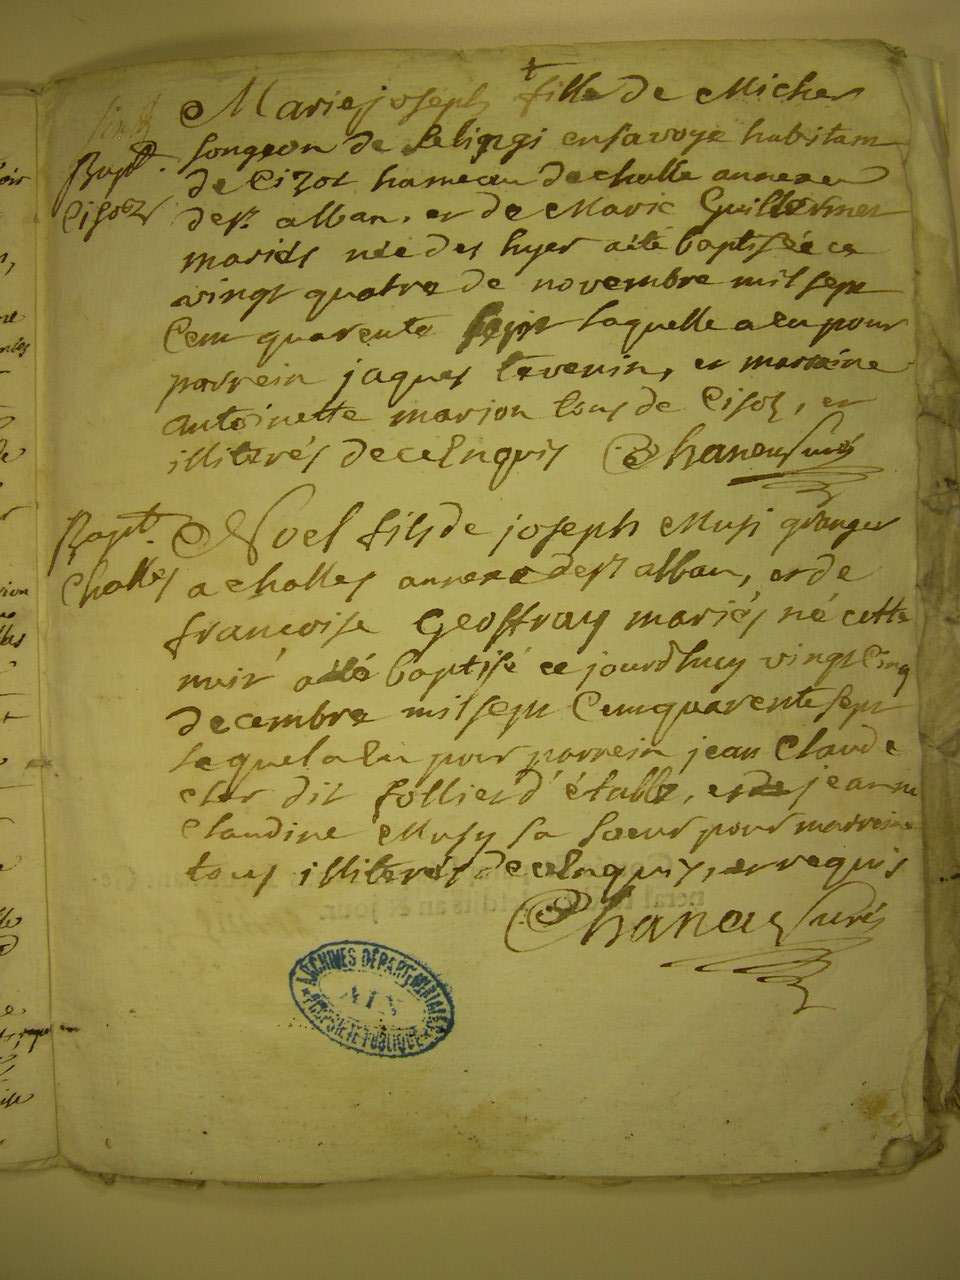 Bapt.
Cisoz
Marie joseph fille de Micher
songeon de selingi en savoye habitam
de Cizot hameau de challe annexe
de st alban, et de Marie Guillermet
mariés née des hyer a été baptisée ce
vingt quatre de novembre mil sept
Cent quarente sept laquelle a eu pour
parrein jaques tevenin, et marreine
antoinette marion tous de Cisoz, et
illiterés de ce enquis Chaneus curé
Bapt.
Challes
Noel fils de joseph Musi granger
a challes annexe de st alban, et de
françoise Geoffray mariés né cette
nuit a été baptisé ce jourdhuy vingt Cinq
decembre mil sept Cent quarente sept
lequel a eu pour parrein jean Claude
dit follier d'étable, et jeanne
Claudine Musy sa sœur pour marreine
tous illiterés de ce enquis, et requis
Chaneus curé
ARCHIVES DÉPARTEMENTALES
AIN
PROPRIÉTÉ PUBLIQUE